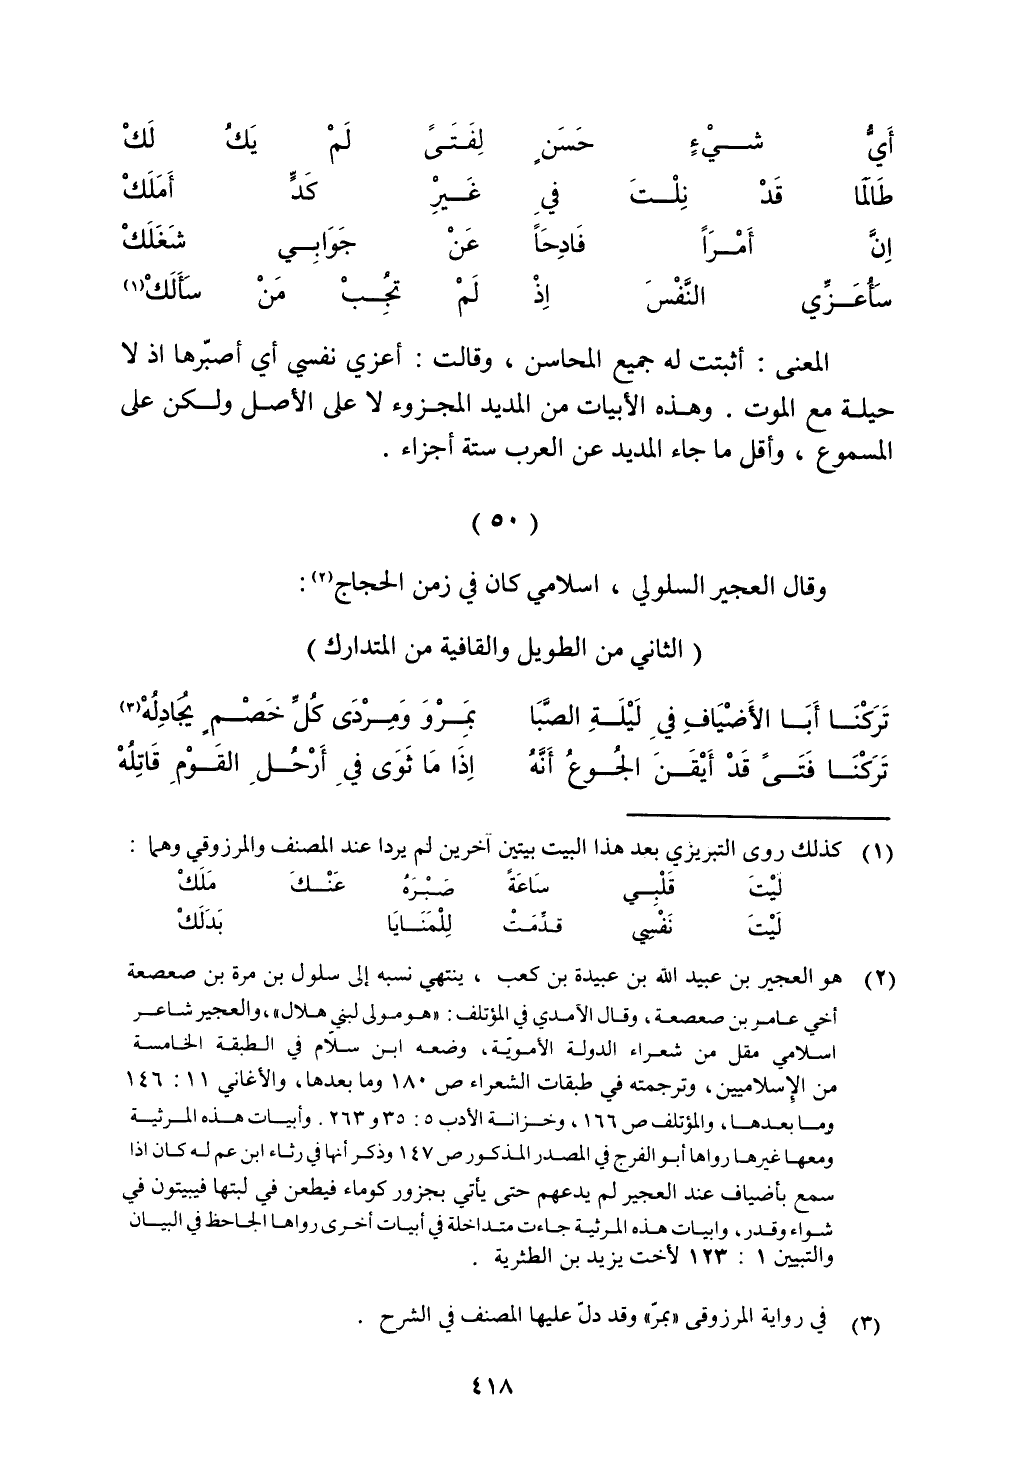 أَيُّ شَـــيْءٍ حَسَنٍ لِفَـتَـىً لَمْ يَكُ لَكْ
طَالَمَا قَدْ نِلْـــتَ فِي غَـــيرِ كَدٍّ أَمَلَكْ
إِنَّ أَمْـــرَاً فَادِحَاً عَنْ جَوَابِـــي شَغَلَكْ
سَأُعَـــزِّي النَّفْسَ إِذْ لَمْ تُجِـــبْ مَنْ سَأَلَكْ(١)
المعنى : أثبتت له جميع المحاسن ، وقالت : أعزي نفسي أي أصبّرها اذ لا
حيلة مع الموت . وهذه الأبيات من المديد المجزوء لا على الأصل ولكن على
المسموع ، وأقل ما جاء المديد عن العرب ستة أجزاء .
( ٥٠ )
وقال العجير السلولي ، اسلامي كان في زمن الحجاج(٢) :
( الثاني من الطويل والقافية من المتدارك )
تَرَكْنَـــا أَبَـــا الأَضْيَافِ فِي لَيْلَـــةِ الصَّبَا بِمَـــرْوَ وَمِـــرْدَى كُلِّ خَصْـــمٍ يُجَادِلُهْ(٣)
تَرَكْنَـــا فَتَـــىً قَدْ أَيْقَـــنَ الجُـــوعُ أَنَّهُ إِذَا مَا ثَوَى فِي أَرْحُـــلِ القَـــوْمِ قَاتِلُهْ
(١) كذلك روى التبريزي بعد هذا البيت بيتين آخرين لم يردا عند المصنف والمرزوقي وهما :
لَيْتَ قَلْبِـــي سَاعَةً صَبْرَهُ عَنْـــكَ مَلَكْ
لَيْتَ نَفْسِي قدِّمَتْ لِلْمَنَـــايَا بَدَلَكْ
(٢) هو العجير بن عبيد الله بن عبيدة بن كعب ، ينتهي نسبه إلى سلول بن مرة بن صعصعة
أخي عامر بن صعصعة ، وقال الآمدي في المؤتلف : «هو مولى لبني هلال» ، والعجير شاعر
اسلامي مقل من شعراء الدولة الأمويّة ، وضعه ابن سلاّم في الطبقة الخامسة
من الإسلاميين ، وترجمته في طبقات الشعراء ص ١٨٠ وما بعدها ، والأغاني ١١ : ١٤٦
وما بعدها ، والمؤتلف ص ١٦٦ ، وخزانة الأدب ٥ : ٣٥ و ٢٦٣ . وأبيات هذه المرثية
ومعها غيرها رواها أبو الفرج في المصدر المذكور ص ١٤٧ وذكر أنها في رثاء ابن عم له كان اذا
سمع بأضياف عند العجير لم يدعهم حتى يأتي بجزور كوماء فيطعن في لبتها فيبيتون في
شواء وقدر ، وابيات هذه المرثية جاءت متداخلة في أبيات أخرى رواها الجاحظ في البيان
والتبيين ١ : ١٢٣ لأخت يزيد بن الطثرية .
(٣) في رواية المرزوقى «بمرّ» وقد دلّ عليها المصنف في الشرح .
٤١٨